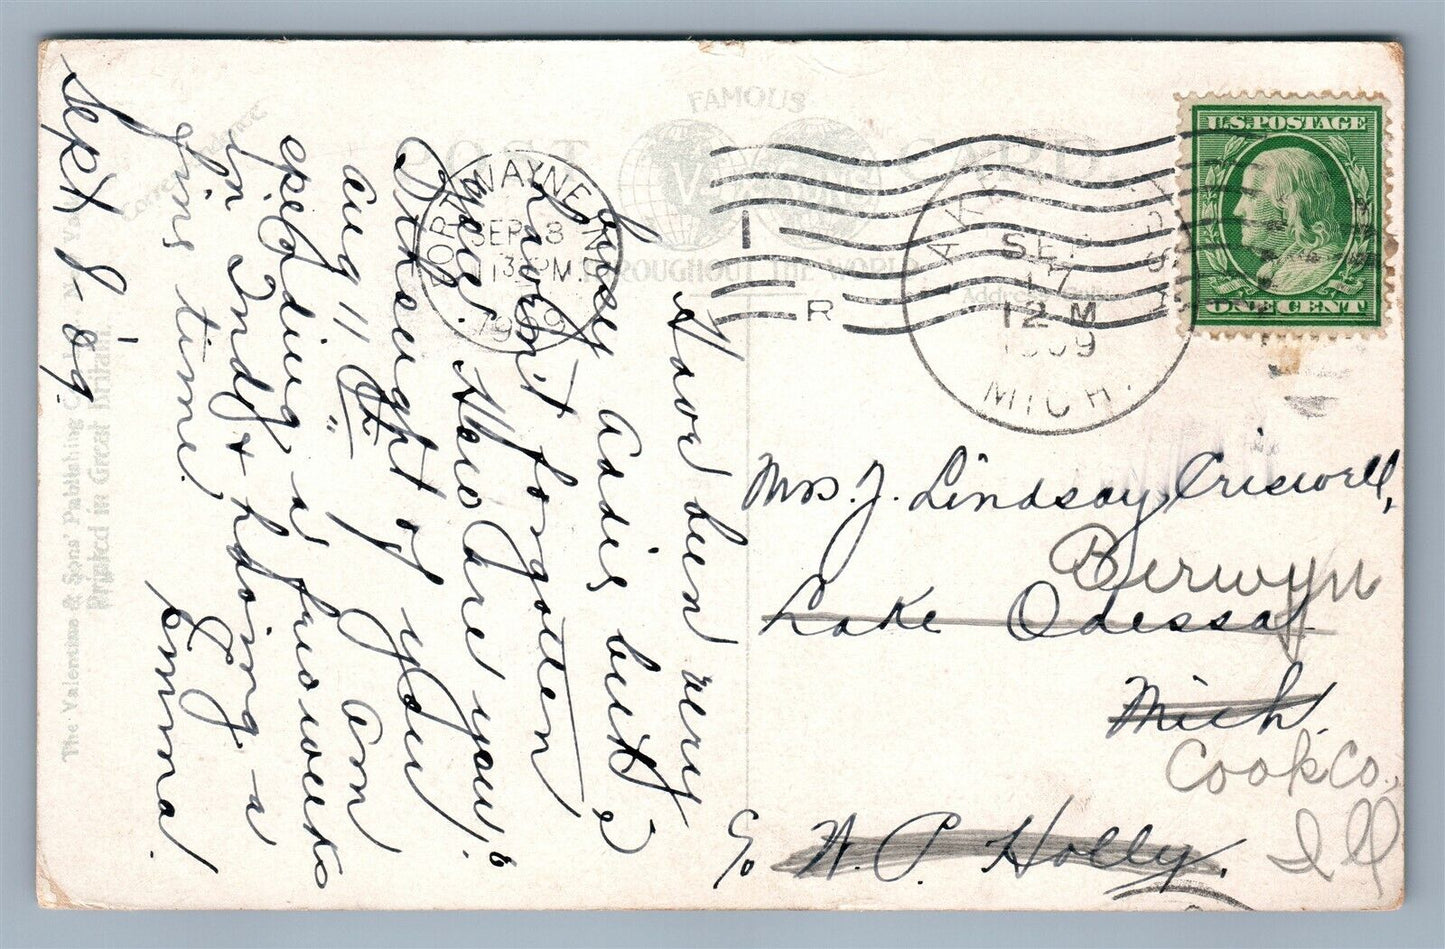 FAMOUS
POST CARD
THROUGHOUT THE WORLD
Correspondence
U.S. POSTAGE
ONE CENT
FORT WAYNE IN
SEP 8
11 30 PM
1909
R
LAKE ODESSA
SEP
17
12 M
1909
MICH.
Sept 8-'09.
Have been very
busy addis but I
haven't forgotten
you. How are you?
I thought of you
Aug 11th. Am
expecting a few weeks
in Indp & having a
fine time.
Emma.
Mrs. J. Lindsay Criswell,
Berwyn
Lake Odessa
Mich.
Cook Co.,
Ill
c/o W. P. Holly.
The Valentine & Sons' Publishing Co.
Printed in Great Britain.